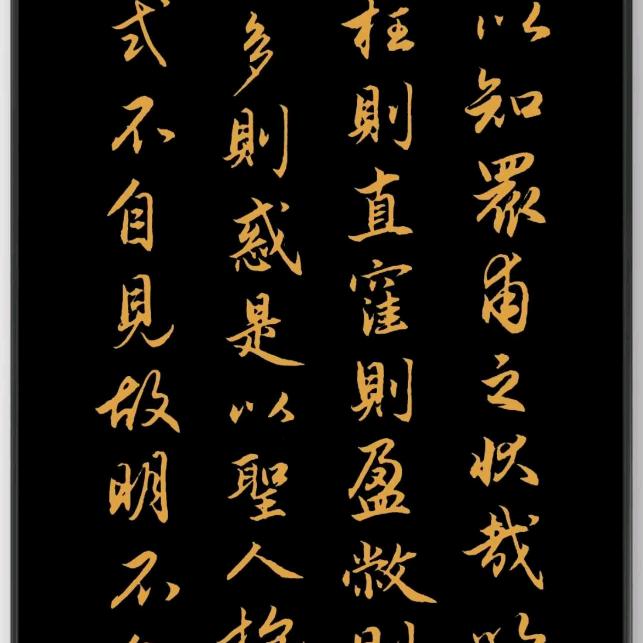 以知眾甫之狀哉
枉則直窪則盈敝則
多則惑是以聖人
式不自見故明不